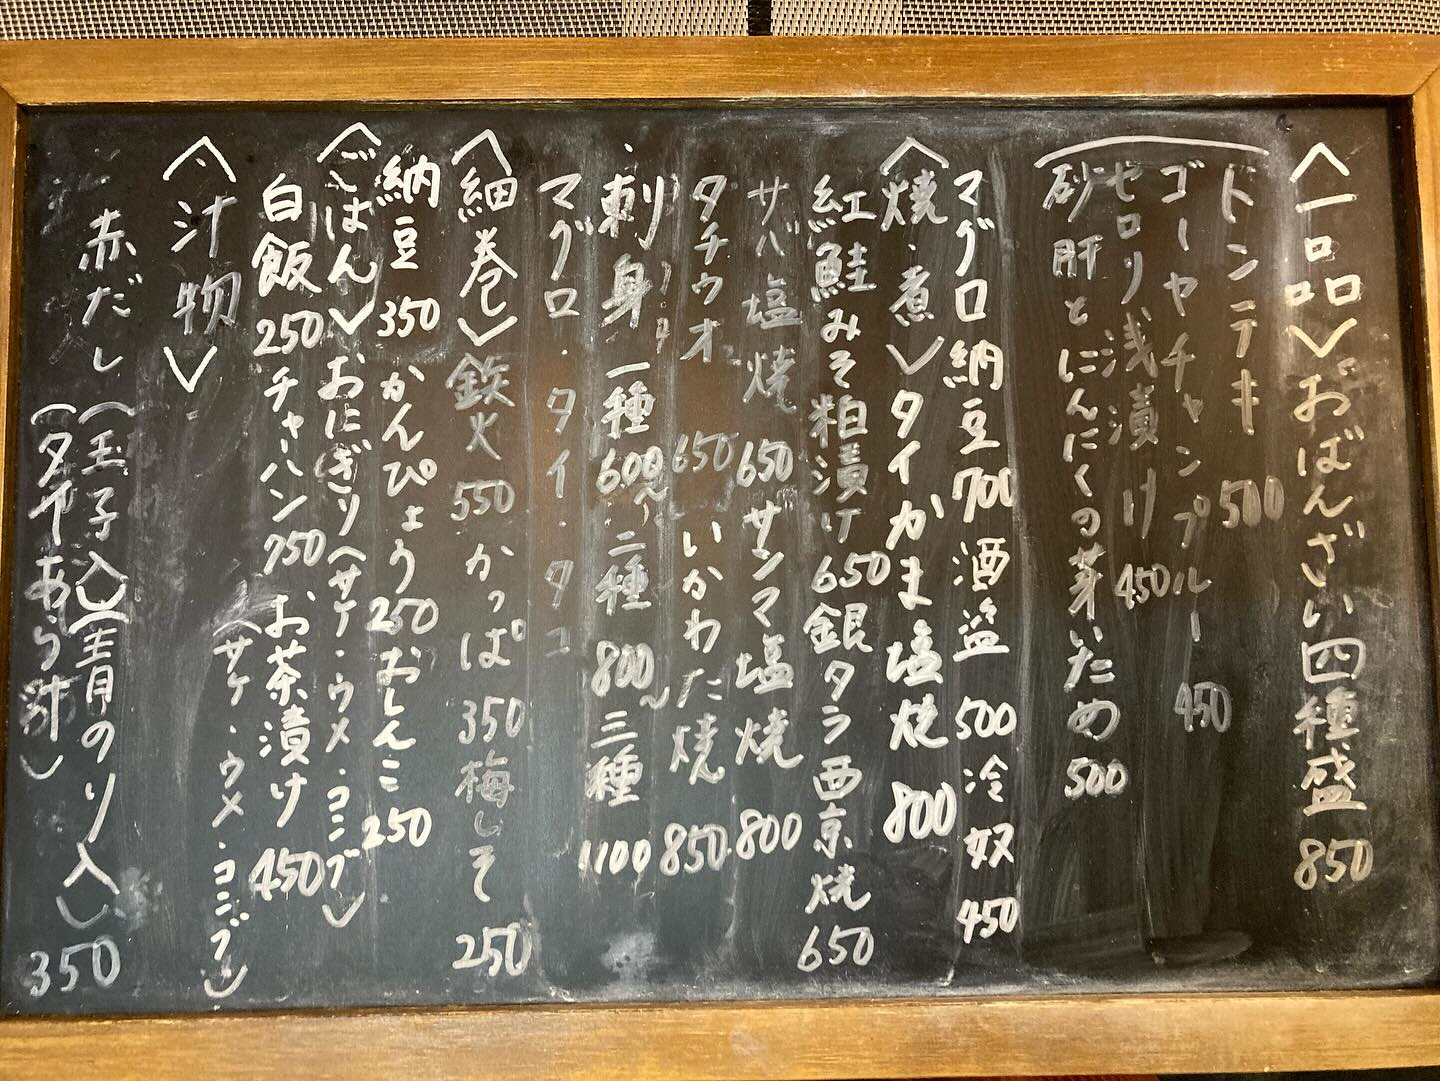 〈一品〉おばんざい四種盛 850
トンテキ 500
ゴーヤチャンプルー 450
セロリ浅漬け 450
砂肝とにんにくの芽いため 500
マグロ納豆 700 酒盗 500 冷奴 450
〈焼・煮〉タイかま塩焼 800
紅鮭みそ粕漬け 650 銀タラ西京焼 650
サバ塩焼 650 サンマ塩焼 800
タチウオ 650 いかわた焼 850
刺身 一種 600〜 二種 800〜 三種 1100
マグロ・タイ・タコ
〈細巻〉鉄火 550 かっぱ 350 梅しそ 250
納豆 350 かんぴょう 250 おしんこ 250
〈ごはん〉おにぎり〈サケ・ウメ・コンブ〉
白飯 250 チャーハン 750 お茶漬け 450
〈サケ・ウメ・コンブ〉
〈汁物〉
赤だし(玉子入)(青のり入)
(タヤあら汁) 350